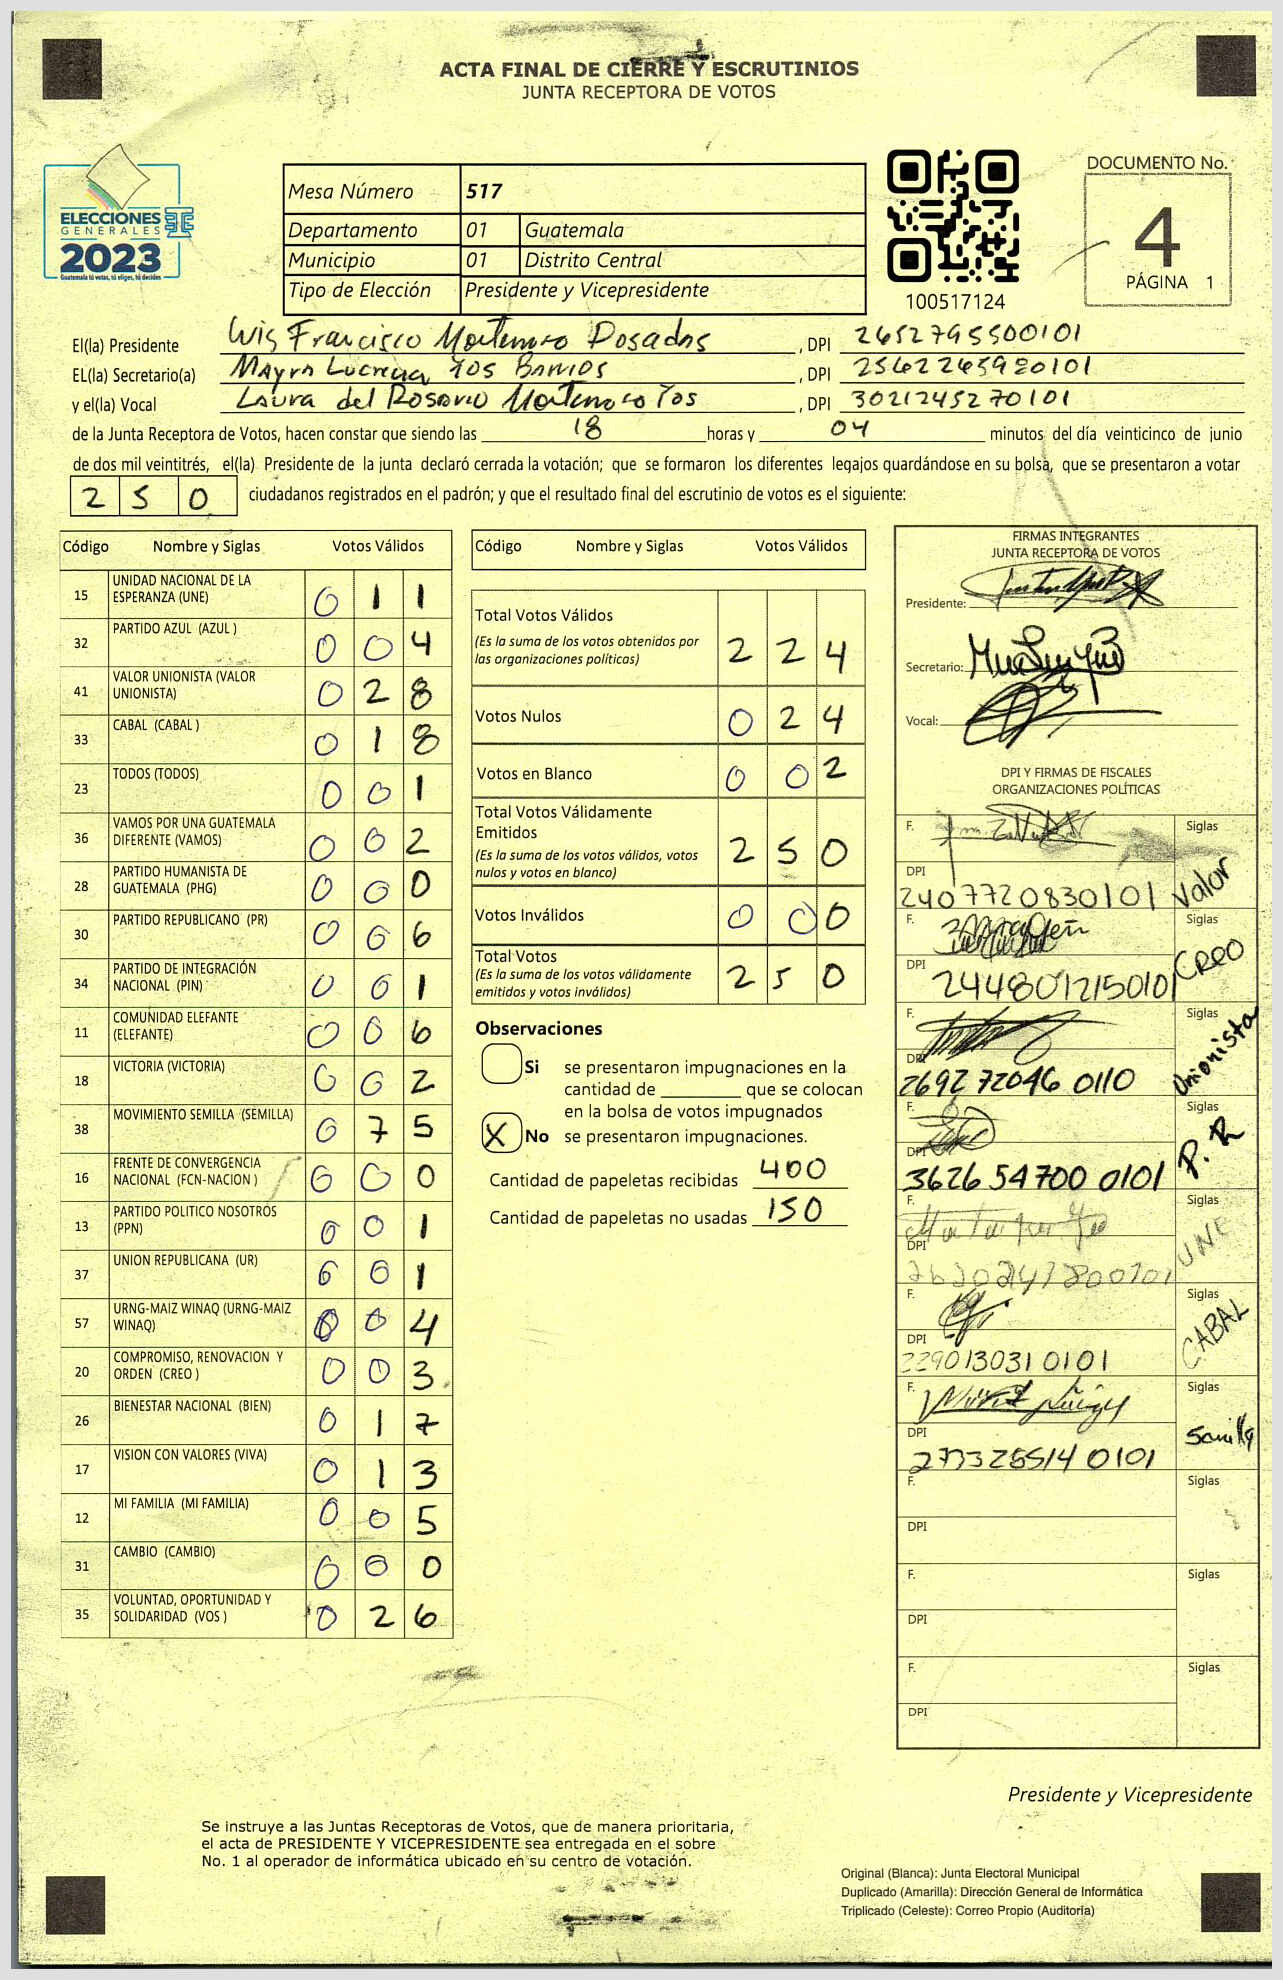 ACTA FINAL DE CIERRE Y ESCRUTINIOS
JUNTA RECEPTORA DE VOTOS
ELECCIONES
GENERALES
2023
Guatemala tú votas, tú eliges, tú decides
Mesa Número 517
Departamento 01 Guatemala
Municipio 01 Distrito Central
Tipo de Elección Presidente y Vicepresidente
100517124
DOCUMENTO No.
4
PÁGINA 1
El(la) Presidente Luis Francisco Posadas , DPI 2652795500101
EL(la) Secretario(a) Mayra Lucrecia Barrios , DPI 2562265920101
y el(la) Vocal Laura del Rosario , DPI 3021245270101
de la Junta Receptora de Votos, hacen constar que siendo las 18 horas y 04 minutos del día veinticinco de junio
de dos mil veintitrés, el(la) Presidente de la junta declaró cerrada la votación; que se formaron los diferentes legajos guardándose en su bolsa, que se presentaron a votar
250 ciudadanos registrados en el padrón; y que el resultado final del escrutinio de votos es el siguiente:
Código Nombre y Siglas Votos Válidos
15 UNIDAD NACIONAL DE LA ESPERANZA (UNE) 0 1 1
32 PARTIDO AZUL (AZUL ) 0 0 4
41 VALOR UNIONISTA (VALOR UNIONISTA) 0 2 8
33 CABAL (CABAL ) 0 1 8
23 TODOS (TODOS) 0 0 1
36 VAMOS POR UNA GUATEMALA DIFERENTE (VAMOS) 0 0 2
28 PARTIDO HUMANISTA DE GUATEMALA (PHG) 0 0 0
30 PARTIDO REPUBLICANO (PR) 0 0 6
34 PARTIDO DE INTEGRACIÓN NACIONAL (PIN) 0 0 1
11 COMUNIDAD ELEFANTE (ELEFANTE) 0 0 6
18 VICTORIA (VICTORIA) 0 0 2
38 MOVIMIENTO SEMILLA (SEMILLA) 0 7 5
16 FRENTE DE CONVERGENCIA NACIONAL (FCN-NACION ) 0 0 0
13 PARTIDO POLITICO NOSOTROS (PPN) 0 0 1
37 UNION REPUBLICANA (UR) 0 0 1
57 URNG-MAIZ WINAQ (URNG-MAIZ WINAQ) 0 0 4
20 COMPROMISO, RENOVACION Y ORDEN (CREO ) 0 0 3
26 BIENESTAR NACIONAL (BIEN) 0 1 7
17 VISION CON VALORES (VIVA) 0 1 3
12 MI FAMILIA (MI FAMILIA) 0 0 5
31 CAMBIO (CAMBIO) 0 0 0
35 VOLUNTAD, OPORTUNIDAD Y SOLIDARIDAD (VOS ) 0 2 6
Código Nombre y Siglas Votos Válidos
Total Votos Válidos 2 2 4
(Es la suma de los votos obtenidos por
las organizaciones políticas)
Votos Nulos 0 2 4
Votos en Blanco 0 0 2
Total Votos Válidamente
Emitidos 2 5 0
(Es la suma de los votos válidos, votos
nulos y votos en blanco)
Votos Inválidos 0 0 0
Total Votos 2 5 0
(Es la suma de los votos válidamente
emitidos y votos inválidos)
Observaciones
Si se presentaron impugnaciones en la
cantidad de ________ que se colocan
en la bolsa de votos impugnados
X No se presentaron impugnaciones.
Cantidad de papeletas recibidas 400
Cantidad de papeletas no usadas 150
FIRMAS INTEGRANTES
JUNTA RECEPTORA DE VOTOS
Presidente:
Secretario:
Vocal:
DPI Y FIRMAS DE FISCALES
ORGANIZACIONES POLÍTICAS
F. Siglas Valor
DPI 2407720830101
F. Siglas CREO
DPI 2448012150101
F. Siglas Unionista
DPI 2692 72046 0110
F. Siglas P.R
DPI 3626 54700 0101
F. Siglas UNE
DPI
F. Siglas CABAL
DPI 2290130310101
F. Siglas Semilla
DPI
F. Siglas
DPI
F. Siglas
DPI
F. Siglas
DPI
Presidente y Vicepresidente
Se instruye a las Juntas Receptoras de Votos, que de manera prioritaria,
el acta de PRESIDENTE Y VICEPRESIDENTE sea entregada en el sobre
No. 1 al operador de informática ubicado en su centro de votación.
Original (Blanca): Junta Electoral Municipal
Duplicado (Amarilla): Dirección General de Informática
Triplicado (Celeste): Correo Propio (Auditoría)